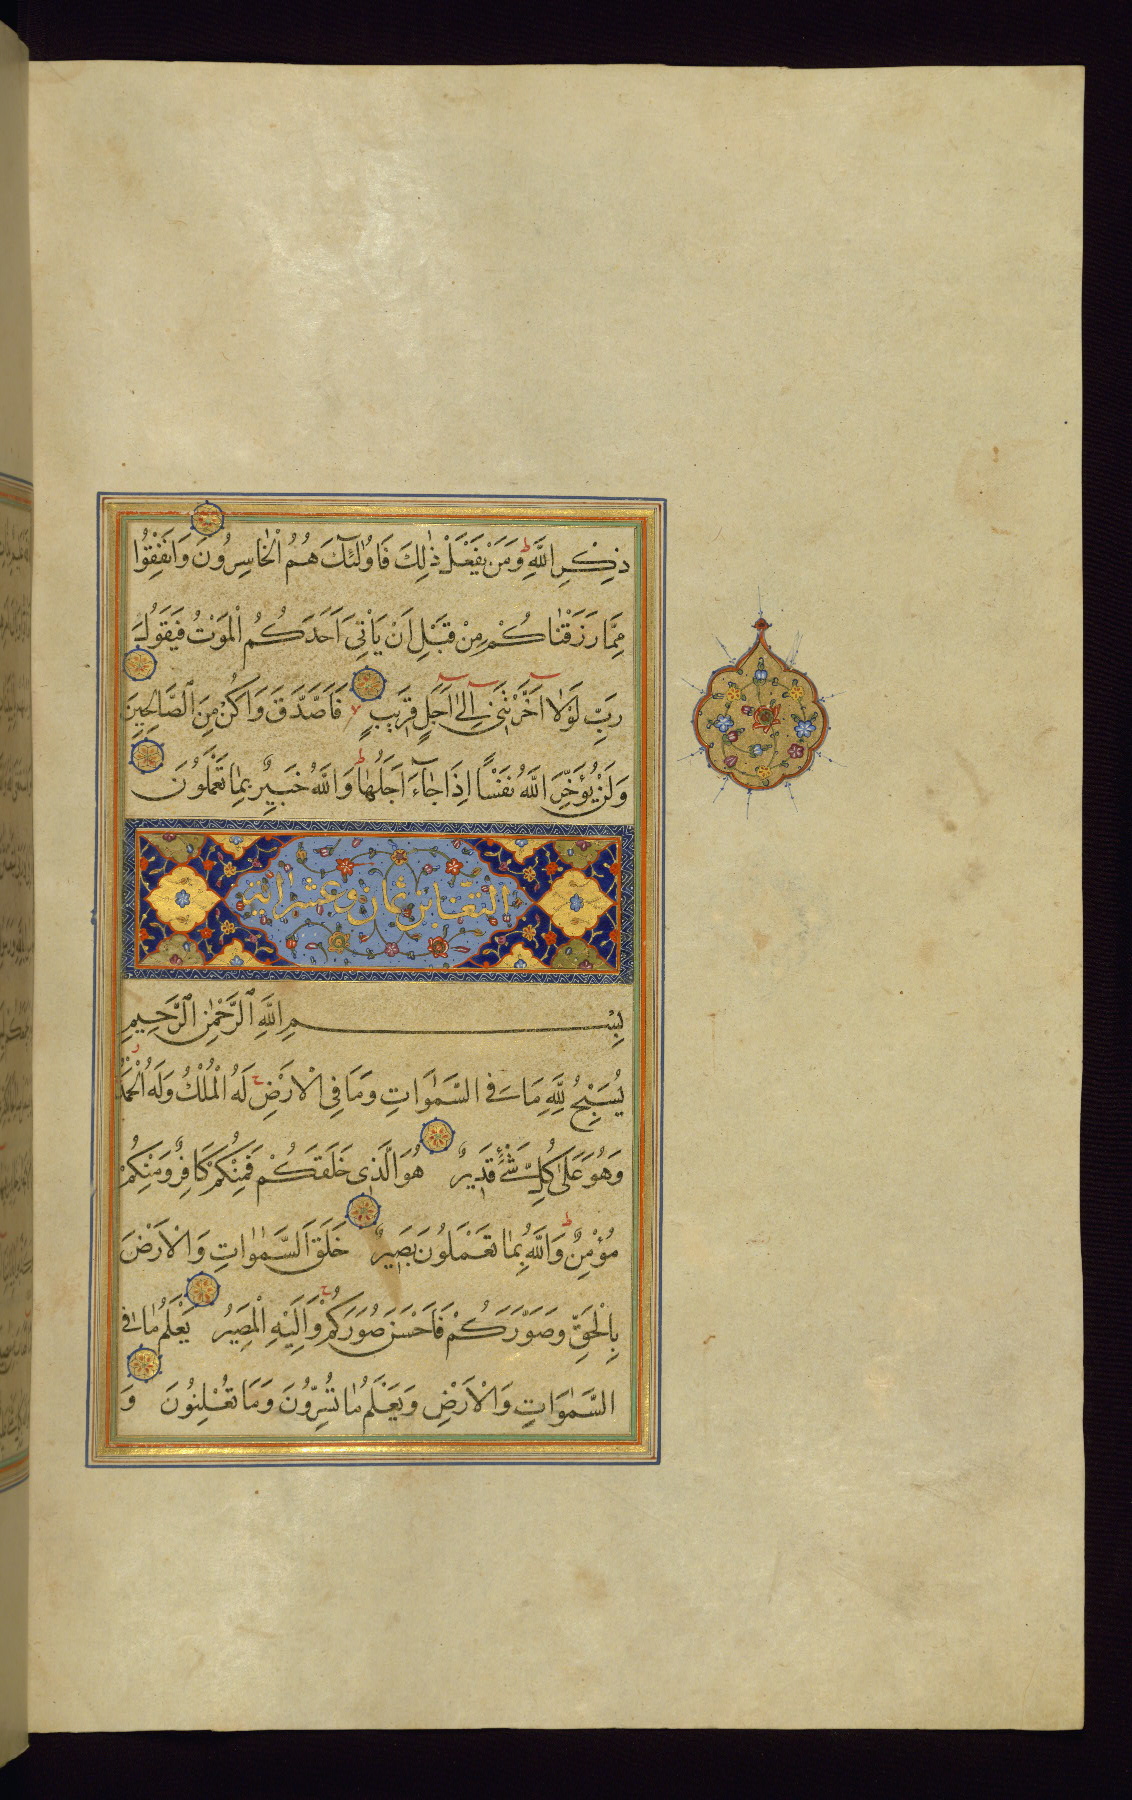 ذِكْرِ اللَّهِ وَمَنْ يَفْعَلْ ذٰلِكَ فَاُولٰئِكَ هُمُ الْخَاسِرُونَ وَاَنْفِقُوا
مِمَّا رَزَقْنَاكُمْ مِنْ قَبْلِ اَنْ يَاْتِىَ اَحَدَكُمُ الْمَوْتُ فَيَقُولَ
رَبِّ لَوْلَا اَخَّرْتَنِى اِلٰى اَجَلٍ قَرِيبٍ فَاَصَّدَّقَ وَاَكُنْ مِنَ الصَّالِحِينَ
وَلَنْ يُؤَخِّرَ اللَّهُ نَفْسًا اِذَا جَاءَ اَجَلُهَا وَاللَّهُ خَبِيرٌ بِمَا تَعْمَلُونَ
التغابن ثمان وعشر اية
بِسْمِ اللَّهِ الرَّحْمٰنِ الرَّحِيمِ
يُسَبِّحُ لِلَّهِ مَا فِى السَّمٰوَاتِ وَمَا فِى الْاَرْضِ لَهُ الْمُلْكُ وَلَهُ الْحَمْدُ
وَهُوَ عَلٰى كُلِّ شَىْءٍ قَدِيرٌ هُوَ الَّذِى خَلَقَكُمْ فَمِنْكُمْ كَافِرٌ وَمِنْكُمْ
مُؤْمِنٌ وَاللَّهُ بِمَا تَعْمَلُونَ بَصِيرٌ خَلَقَ السَّمٰوَاتِ وَالْاَرْضَ
بِالْحَقِّ وَصَوَّرَكُمْ فَاَحْسَنَ صُوَرَكُمْ وَاِلَيْهِ الْمَصِيرُ يَعْلَمُ مَا فِى
السَّمٰوَاتِ وَالْاَرْضِ وَيَعْلَمُ مَا تُسِرُّونَ وَمَا تُعْلِنُونَ وَ